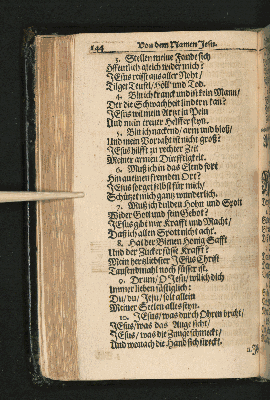 144 Von dem Namen Jesu.
3. Stellen meine Feinde sich
Öffentlich gleich wider mich?
JEsus reist aus aller Noht/
Tilget Teufel/ Höll und Tod.
4. Bin ich kranck und ist kein Mann/
Der die Schwachheit lindern kan?
JEsus wil mein Artzt in Pein
Und mein treuer Helffer seyn.
5. Bin ich nackend/ arm und bloß/
Und mein Vorraht ist nicht groß?
JEsus hilfft zu rechter Zeit
Meiner armen Dürfftigkeit.
6. Muß ich in das Elend fort
Hin an einen fremden Ort?
JEsus sorget selbst für mich/
Schützet mich gantz wunderlich.
7. Muß ich dulden Hohn und Spott
Wider Gott und sein Gebot?
JEsus gibt mir Krafft und Macht/
Daß ich allen Spott nicht acht.
8. Hat der Bienen Honig Safft
Und der Zucker süsse Krafft?
Mein hertzliebster JEsus Christ
Tausendmahl noch süsser ist.
9. Drum/ O Jesu/ wil ich dich
Immer lieben festiglich:
Du/ du/ Jesu/ solt allein
Meiner Seelen alles seyn.
10. JEsus/ was durch Ohren bricht/
JEsus/ was das Auge sieht/
JEsus/ was die Zunge schmeckt/
Und wonach die Hand sich streckt.